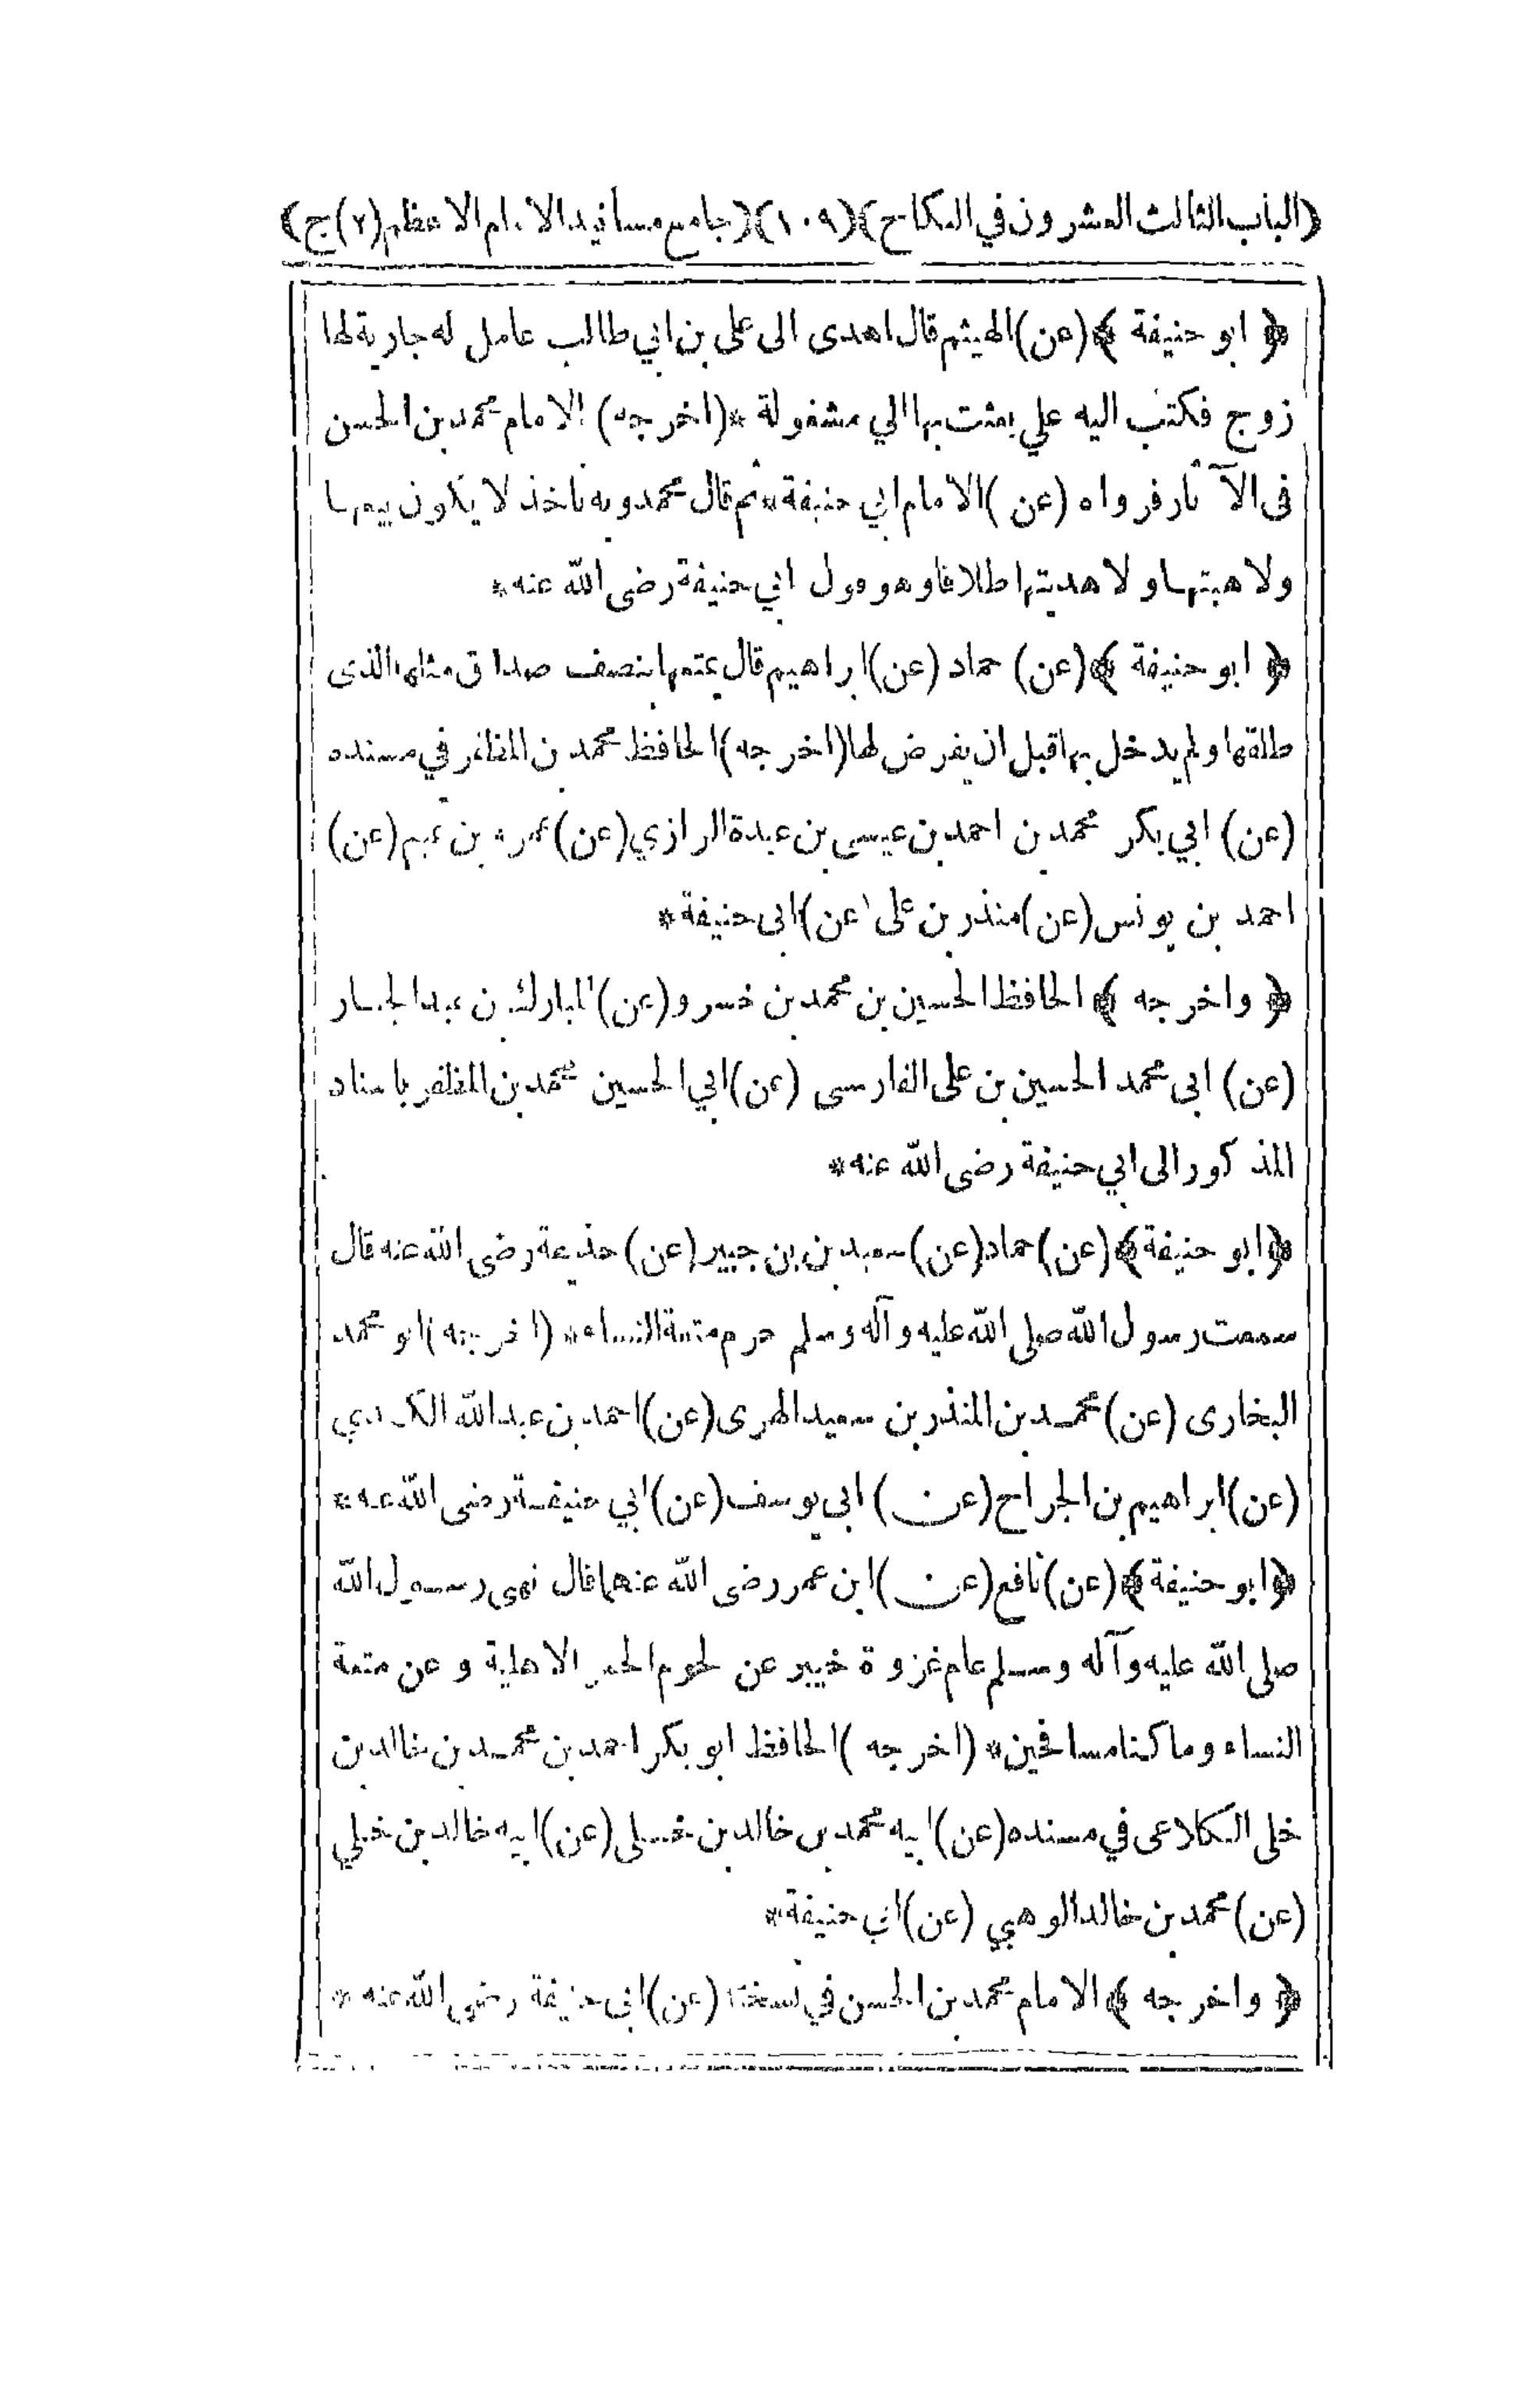 (الباب الثالث العشرون في النكاح) (١٠٩) (جامع مسانيد الامام الاعظم (٢) ج)
﴿ ابو حنيفة ﴾ (عن) الهيثم قال اهدى الى على بن ابي طالب عامل له جارية لها
زوج فكتب اليه علي بعثت بها الي مشغولة * (اخرجه) الامام محمد بن الحسن
فى الآثار فرواه (عن) الامام ابي حنيفة * ثم قال محمد وبه ناخذ لا يكون بيعها
ولا هبتها ولا هديتها طلاقا وهو قول ابي حنيفة رضى الله عنه *
﴿ ابو حنيفة ﴾ (عن) حماد (عن) ابراهيم قال يمتعها بنصف صداق مثلها الذى
طلقها ولم يدخل بها قبل ان يفرض لها (اخرجه) الحافظ محمد بن المظفر في مسنده
(عن) ابي بكر محمد بن احمد بن عيسى بن عبدة الرازي (عن) بن (عن)
احمد بن يونس (عن) منذر بن على (عن) ابى حنيفة *
﴿ واخرجه ﴾ الحافظ الحسين بن محمد بن خسرو (عن) المبارك بن عبد الجبار
(عن) ابى محمد الحسين بن على الفارسى (عن) ابي الحسين محمد بن المظفر باسناد
المذكور الى ابي حنيفة رضى الله عنه *
﴿ ابو حنيفة ﴾ (عن) حماد (عن) سعيد بن بن جبير (عن) حذيفة رضى الله عنه قال
سمعت رسول الله صلى الله عليه وآله وسلم حرم متعة النساء * (اخرجه) ابو محمد
البخارى (عن) محمد بن المنذر بن سعيد الهروى (عن) احمد بن عبد الله الكندي
(عن) ابراهيم بن الجراح (عن) ابى يوسف (عن) ابي حنيفة رضى الله عنه *
﴿ ابو حنيفة ﴾ (عن) نافع (عن) ابن عمر رضى الله عنهما قال نهى رسول الله
صلى الله عليه وآله وسلم عام غزوة خيبر عن لحوم الحمر الاهلية و عن متعة
النساء وما كنا مسافحين * (اخرجه) الحافظ ابو بكر احمد بن محمد بن خالد بن
خلى الكلاعى في مسنده (عن) ابيه محمد بن خالد بن خلى (عن) ابيه خالد بن خلي
(عن) محمد بن خالد الوهبي (عن) ابي حنيفة *
﴿ واخرجه ﴾ الامام محمد بن الحسن في نسخته (عن) ابى حنيفة رضى الله عنه *